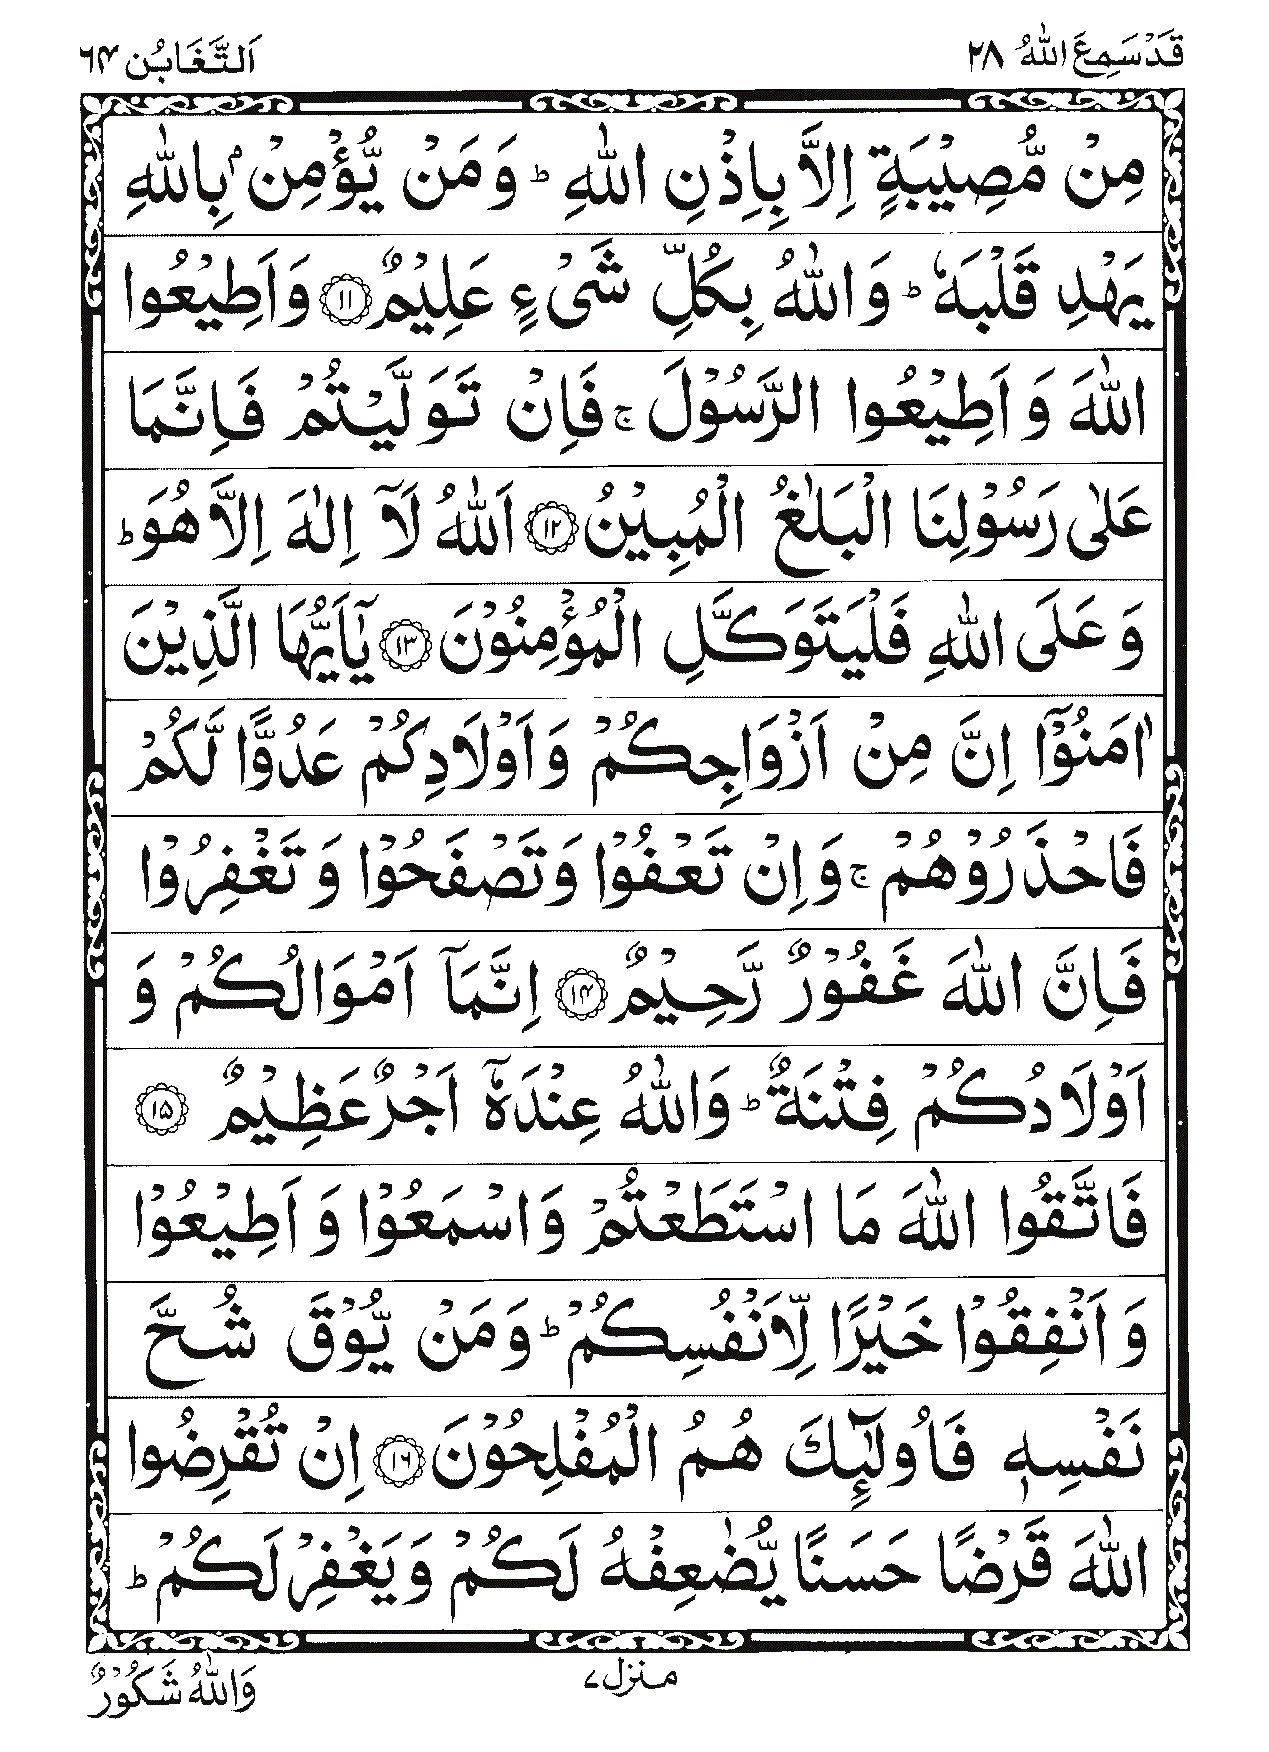 قَدْ سَمِعَ اللّٰهُ ٢٨
اَلتَّغَابُن ٦٤
مِنْ مُّصِيْبَةٍ اِلَّا بِاِذْنِ اللّٰهِ ؕ وَ مَنْ يُّؤْمِنْۢ بِاللّٰهِ
يَهْدِ قَلْبَهٗ ؕ وَ اللّٰهُ بِكُلِّ شَیْءٍ عَلِيْمٌ ﴿١١﴾ وَ اَطِيْعُوا
اللّٰهَ وَ اَطِيْعُوا الرَّسُوْلَ ۚ فَاِنْ تَوَلَّيْتُمْ فَاِنَّمَا
عَلٰى رَسُوْلِنَا الْبَلٰغُ الْمُبِيْنُ ﴿١٢﴾ اَللّٰهُ لَاۤ اِلٰهَ اِلَّا هُوَ ؕ
وَ عَلَى اللّٰهِ فَلْيَتَوَكَّلِ الْمُؤْمِنُوْنَ ﴿١٣﴾ يٰۤاَيُّهَا الَّذِيْنَ
اٰمَنُوْۤا اِنَّ مِنْ اَزْوَاجِكُمْ وَ اَوْلَادِكُمْ عَدُوًّا لَّكُمْ
فَاحْذَرُوْهُمْ ۚ وَ اِنْ تَعْفُوْا وَ تَصْفَحُوْا وَ تَغْفِرُوْا
فَاِنَّ اللّٰهَ غَفُوْرٌ رَّحِيْمٌ ﴿١٤﴾ اِنَّمَاۤ اَمْوَالُكُمْ وَ
اَوْلَادُكُمْ فِتْنَةٌ ؕ وَ اللّٰهُ عِنْدَهٗۤ اَجْرٌ عَظِيْمٌ ﴿١٥﴾
فَاتَّقُوا اللّٰهَ مَا اسْتَطَعْتُمْ وَ اسْمَعُوْا وَ اَطِيْعُوْا
وَ اَنْفِقُوْا خَيْرًا لِّاَنْفُسِكُمْ ؕ وَ مَنْ يُّوْقَ شُحَّ
نَفْسِهٖ فَاُولٰٓئِكَ هُمُ الْمُفْلِحُوْنَ ﴿١٦﴾ اِنْ تُقْرِضُوا
اللّٰهَ قَرْضًا حَسَنًا يُّضٰعِفْهُ لَكُمْ وَ يَغْفِرْ لَكُمْ ؕ
منزل ٧
وَاللّٰهُ شَكُوْرٌ